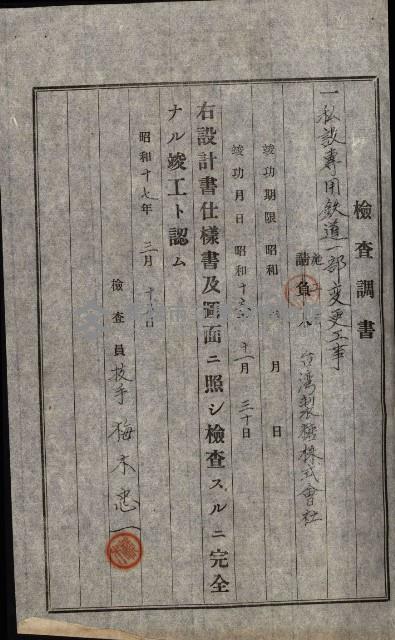 檢查調書
一私設專用鉄道一部変更工事
施工
請負人 台湾製糖株式會社
竣功期限 昭和 年 月 日
竣功月日 昭和十六年 十一月 三十日
右設計書仕様書及圖面ニ照シ檢查スルニ完全
ナル竣工ト認ム
昭和十七年 三月 十八日
檢查員 技手 梅木忠一